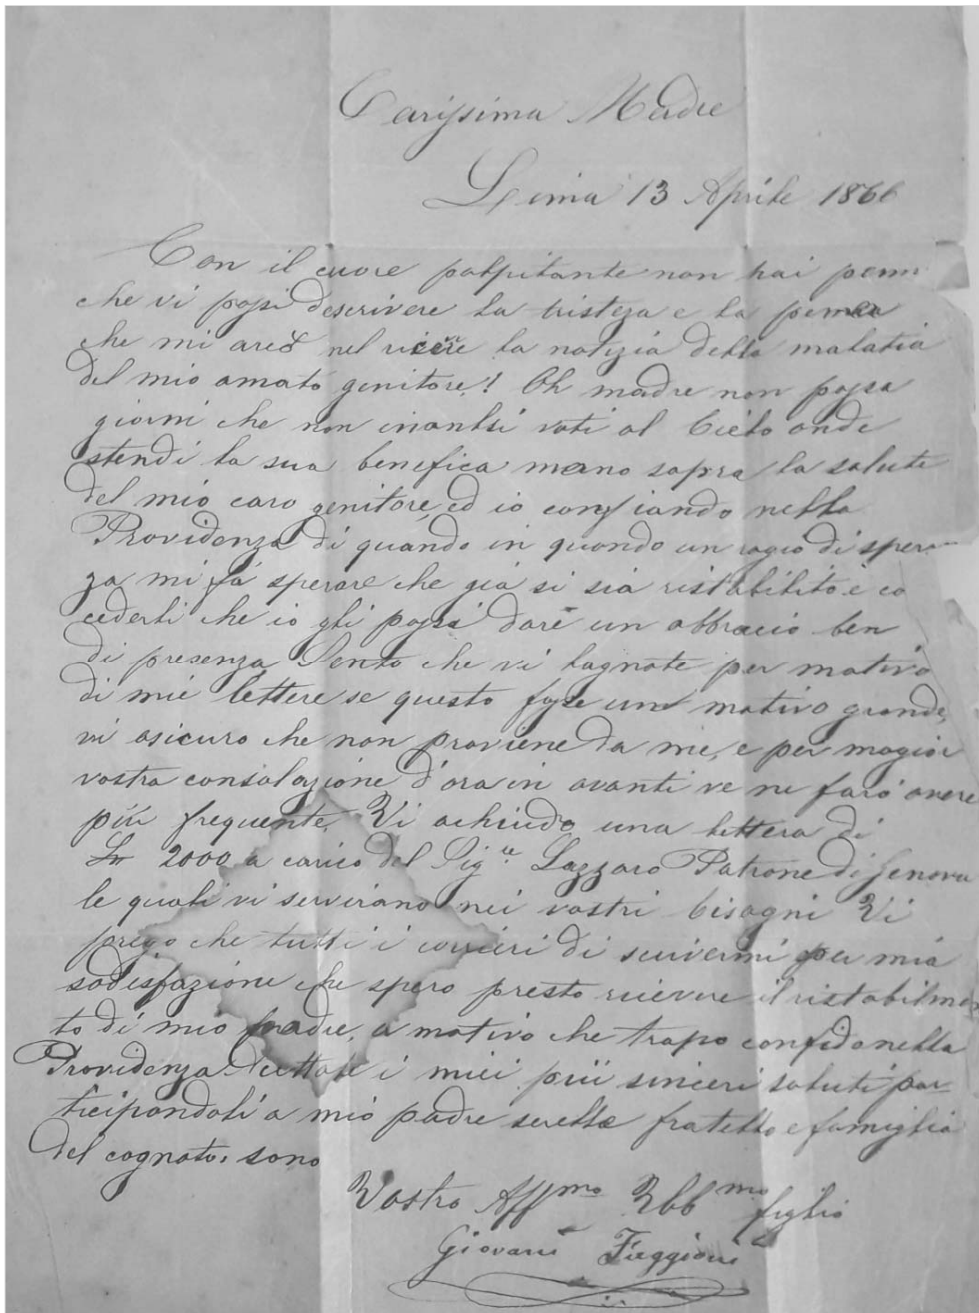 Carissima Madre
Lima 13 Aprile 1866
Con il cuore palpitante non hai penn
che vi possi descrivere la tristeza e la penna
che mi nel la notizia della malatia
del mio amato genitore! Oh madre non passa
giorni che non inantsi voti al Cielo onde
stendi la sua benefica mano sopra la salute
del mio caro genitore, ed io confiando nella
Providenza di quando in quando un ragio di speran
za mi fà sperare che già si sia ristabilito e co
cederti che io gli possi dare un abbracio ben
di presenza Sento che vi lagnate per motivo
di mie lettere se questo fosse un motivo grande,
vi asicuro che non proviene da me, e per magior
vostra consolazione d'ora in avanti ve ne farò avere
più frequente. Vi achiudo una lettera di
Ln 2000 a carico del Sig.re Lazzaro Patrone di Genova
le quali vi servirano nei vostri bisogni Vi
prego che tutti i corrieri di scrivermi per mia
sodisfazione che spero presto ricevere il ristabilmen
to di mio padre, a motivo che tropo confido nella
Providenza. i miei più sinceri saluti par-
ticipandoli a mio padre sorelle fratello e famiglia
del cognato, sono
Vostro Aff.mo Ubb.mo figlio
Giovani